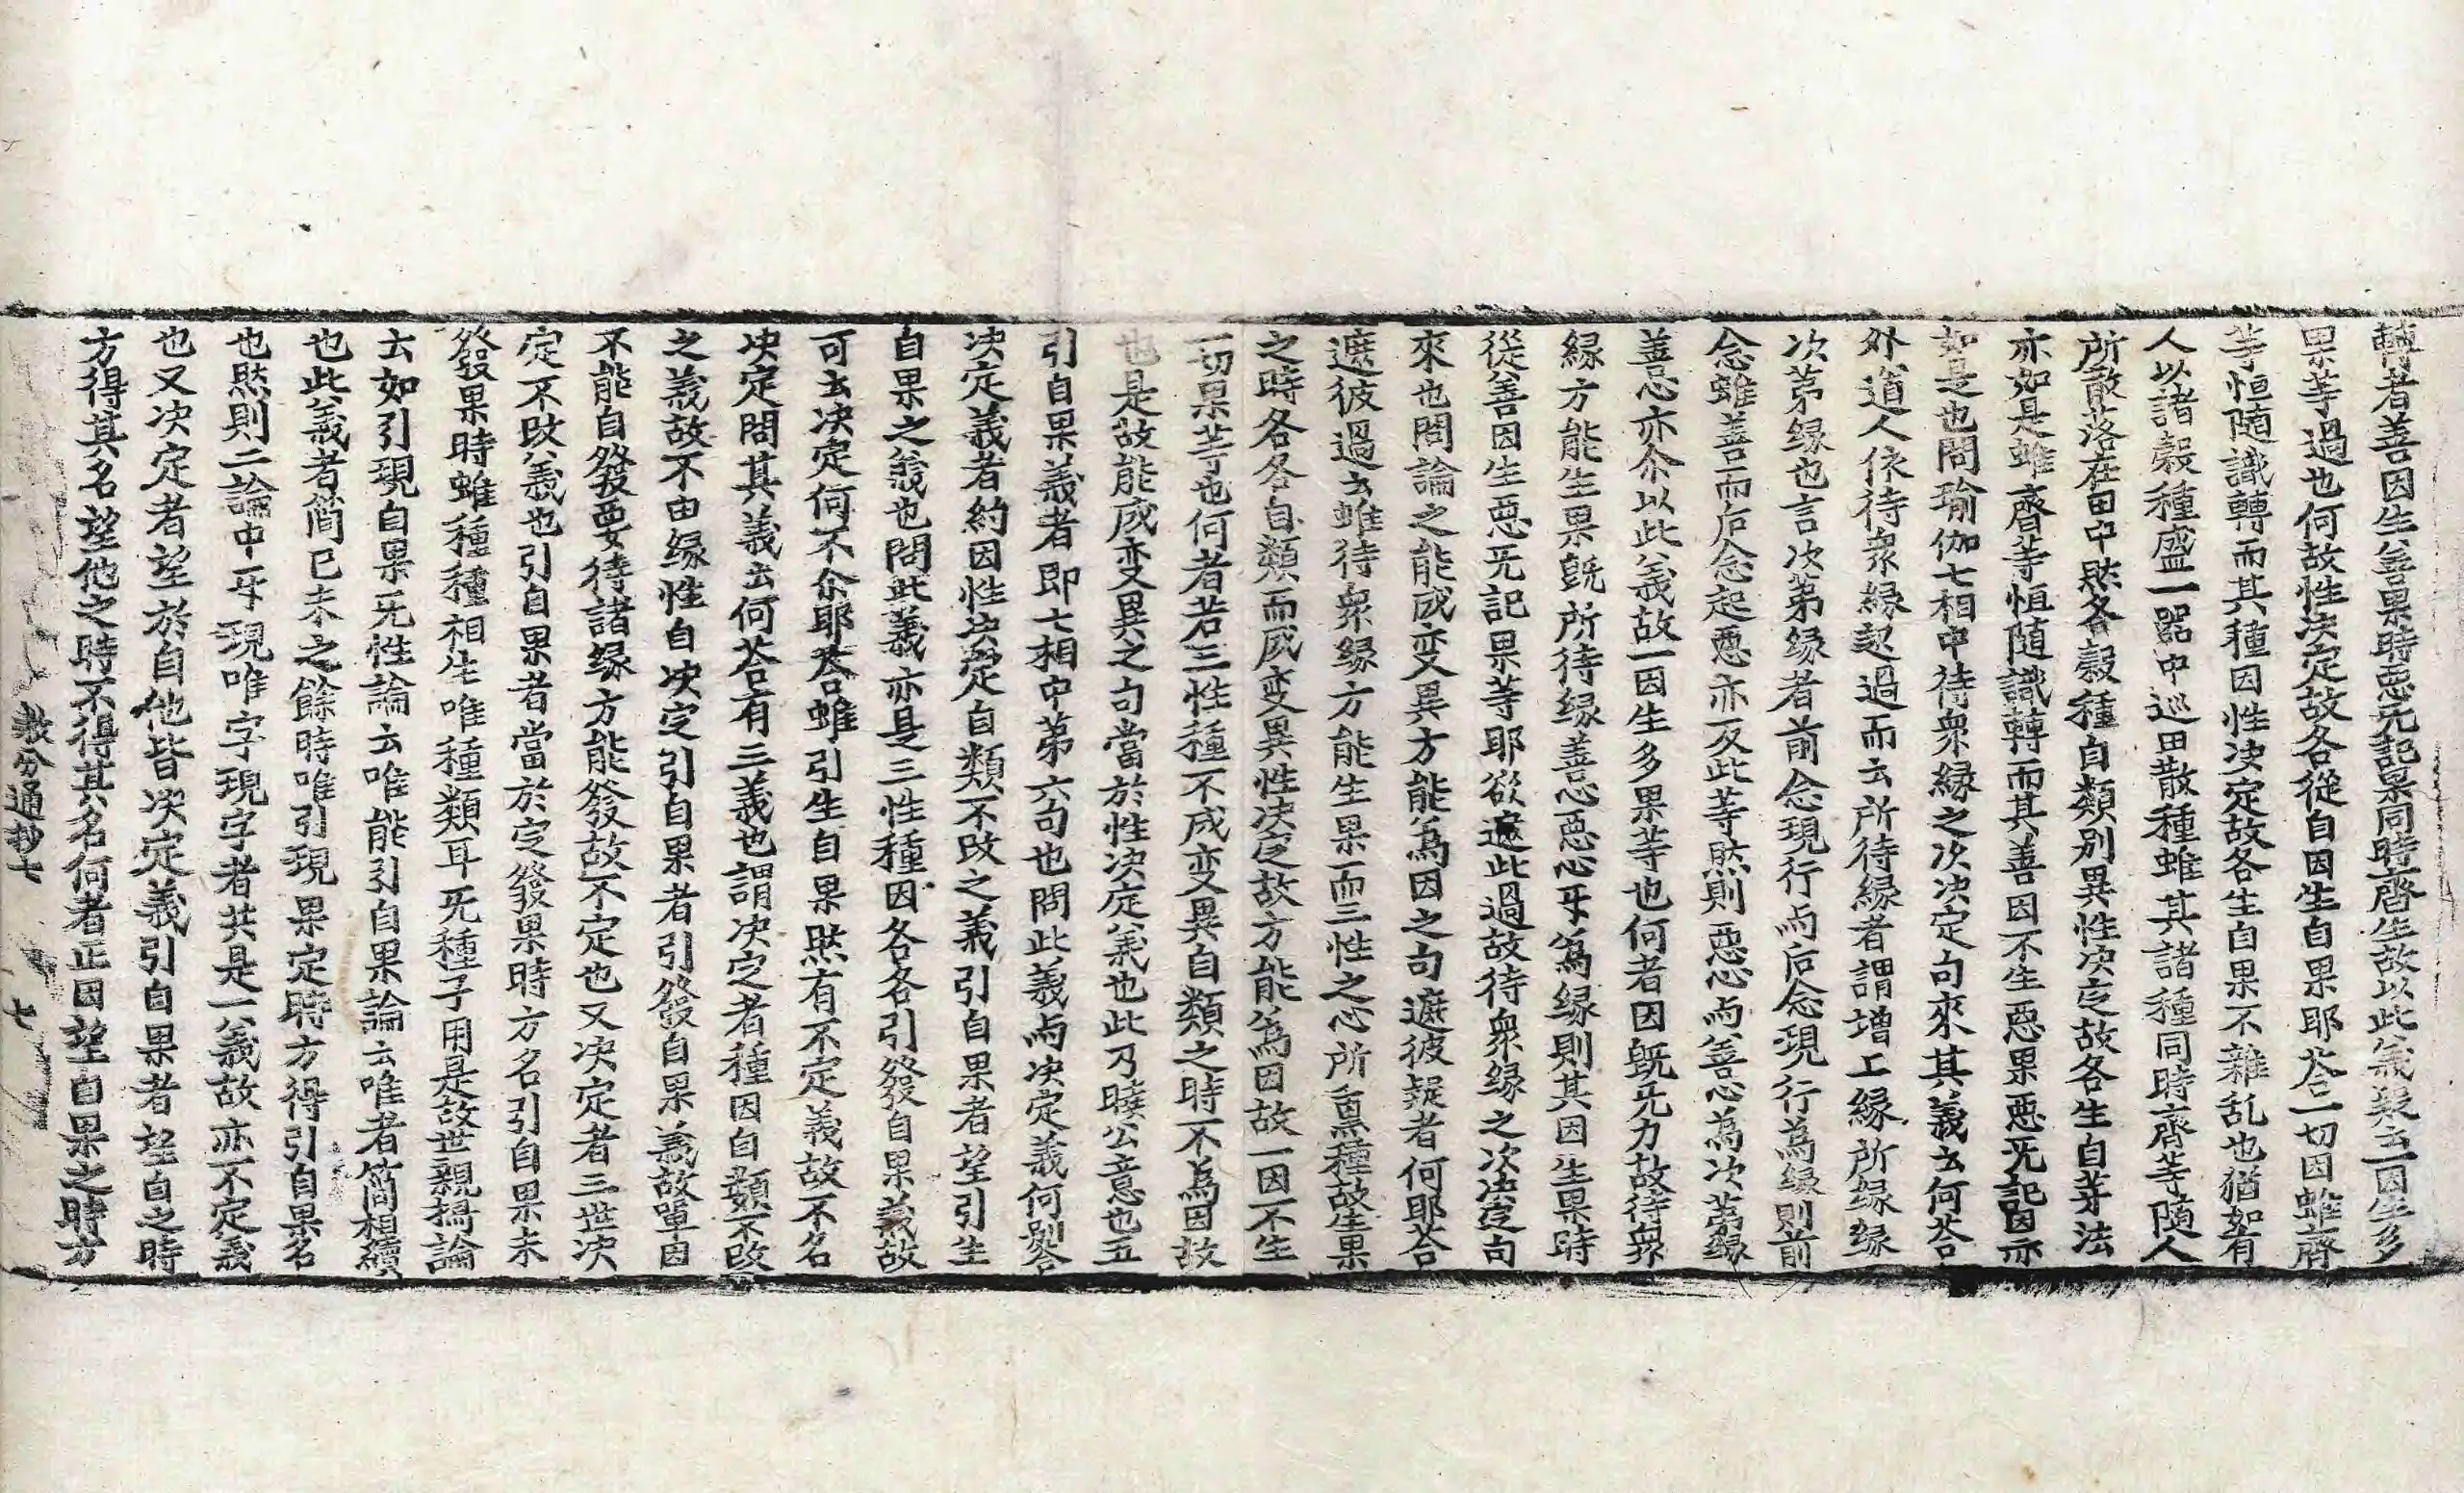 轉者善因生善果時惡旡記果同時齊生故以此義疑云一因生多
果等過也何故性決定故各從自因生自果耶荅一切因雖齊
等恒隨識轉而其種因性决定故各生自果不雜乱也猶如有
人以諸穀種盛一器中巡田散種雖其諸種同時齊等隨人
所散落在田中然各穀種自類別異性决定故各生自芽法
亦如是雖齊等恒隨識轉而其善因不生惡果惡旡記因亦
如是也問瑜伽七相中待衆縁之次决定句來其義云何荅
外道人依待衆縁起過而云所待縁者謂增上縁所縁縁
次第縁也言次第縁者前念現行与后念現行為縁則前
念雖善而后念起惡亦反此等然則惡心与善心為次第縁
善心亦尒以此義故一因生多果等也何者因旣旡力故待衆
縁方能生果旣所待縁善心惡心㸦為縁則其因生果時
從善因生惡旡記果等耶欲遮此過故待衆縁之次决定句
來也問論之能成変異方能為因之句遮彼疑者何耶荅
遮彼過云雖待衆縁方能生果而三性之心所熏種故生果
之時各各自類而成変異性决定故方能為因故一因不生
一切果等也何者若三性種不成変異自類之時不為因故
也是故能成変異之句當於性决定義也此乃曉公意也五
引自果義者即七相中第六句也問此義与决定義何別荅
决定義者約因性决定自類不改之義引自果者望引生
自果之義也問此義亦是三性種因各各引發自果義故
可云决定何不尒耶荅雖引生自果然有不定義故不名
决定問其義云何荅有三義也謂决定者種因自類不改
之義故不由縁性自决定引自果者引發自果義故單因
不能自發要待諸縁方能發故不定也又决定者三世决
定不改義也引自果者當於定發果時方名引自果未
發果時雖種種相生唯種類耳旡種子用是故世親攝論
云如引現自果旡性論云唯能引自果論云唯者簡相續
也此義者簡已未之餘時唯引現果定時方得引自果名
也然則二論中㸦現唯字現字者共是一義故亦不定義
也又决定者望於自他皆决定義引自果者望自之時
方得其名望他之時不得其名何者正因望自果之時方
教分通抄七 七